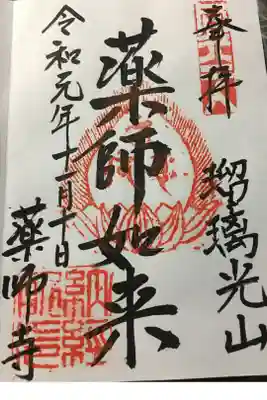 奉拝
瑠璃光山
薬師如来
令和元年十一月十日
薬師寺